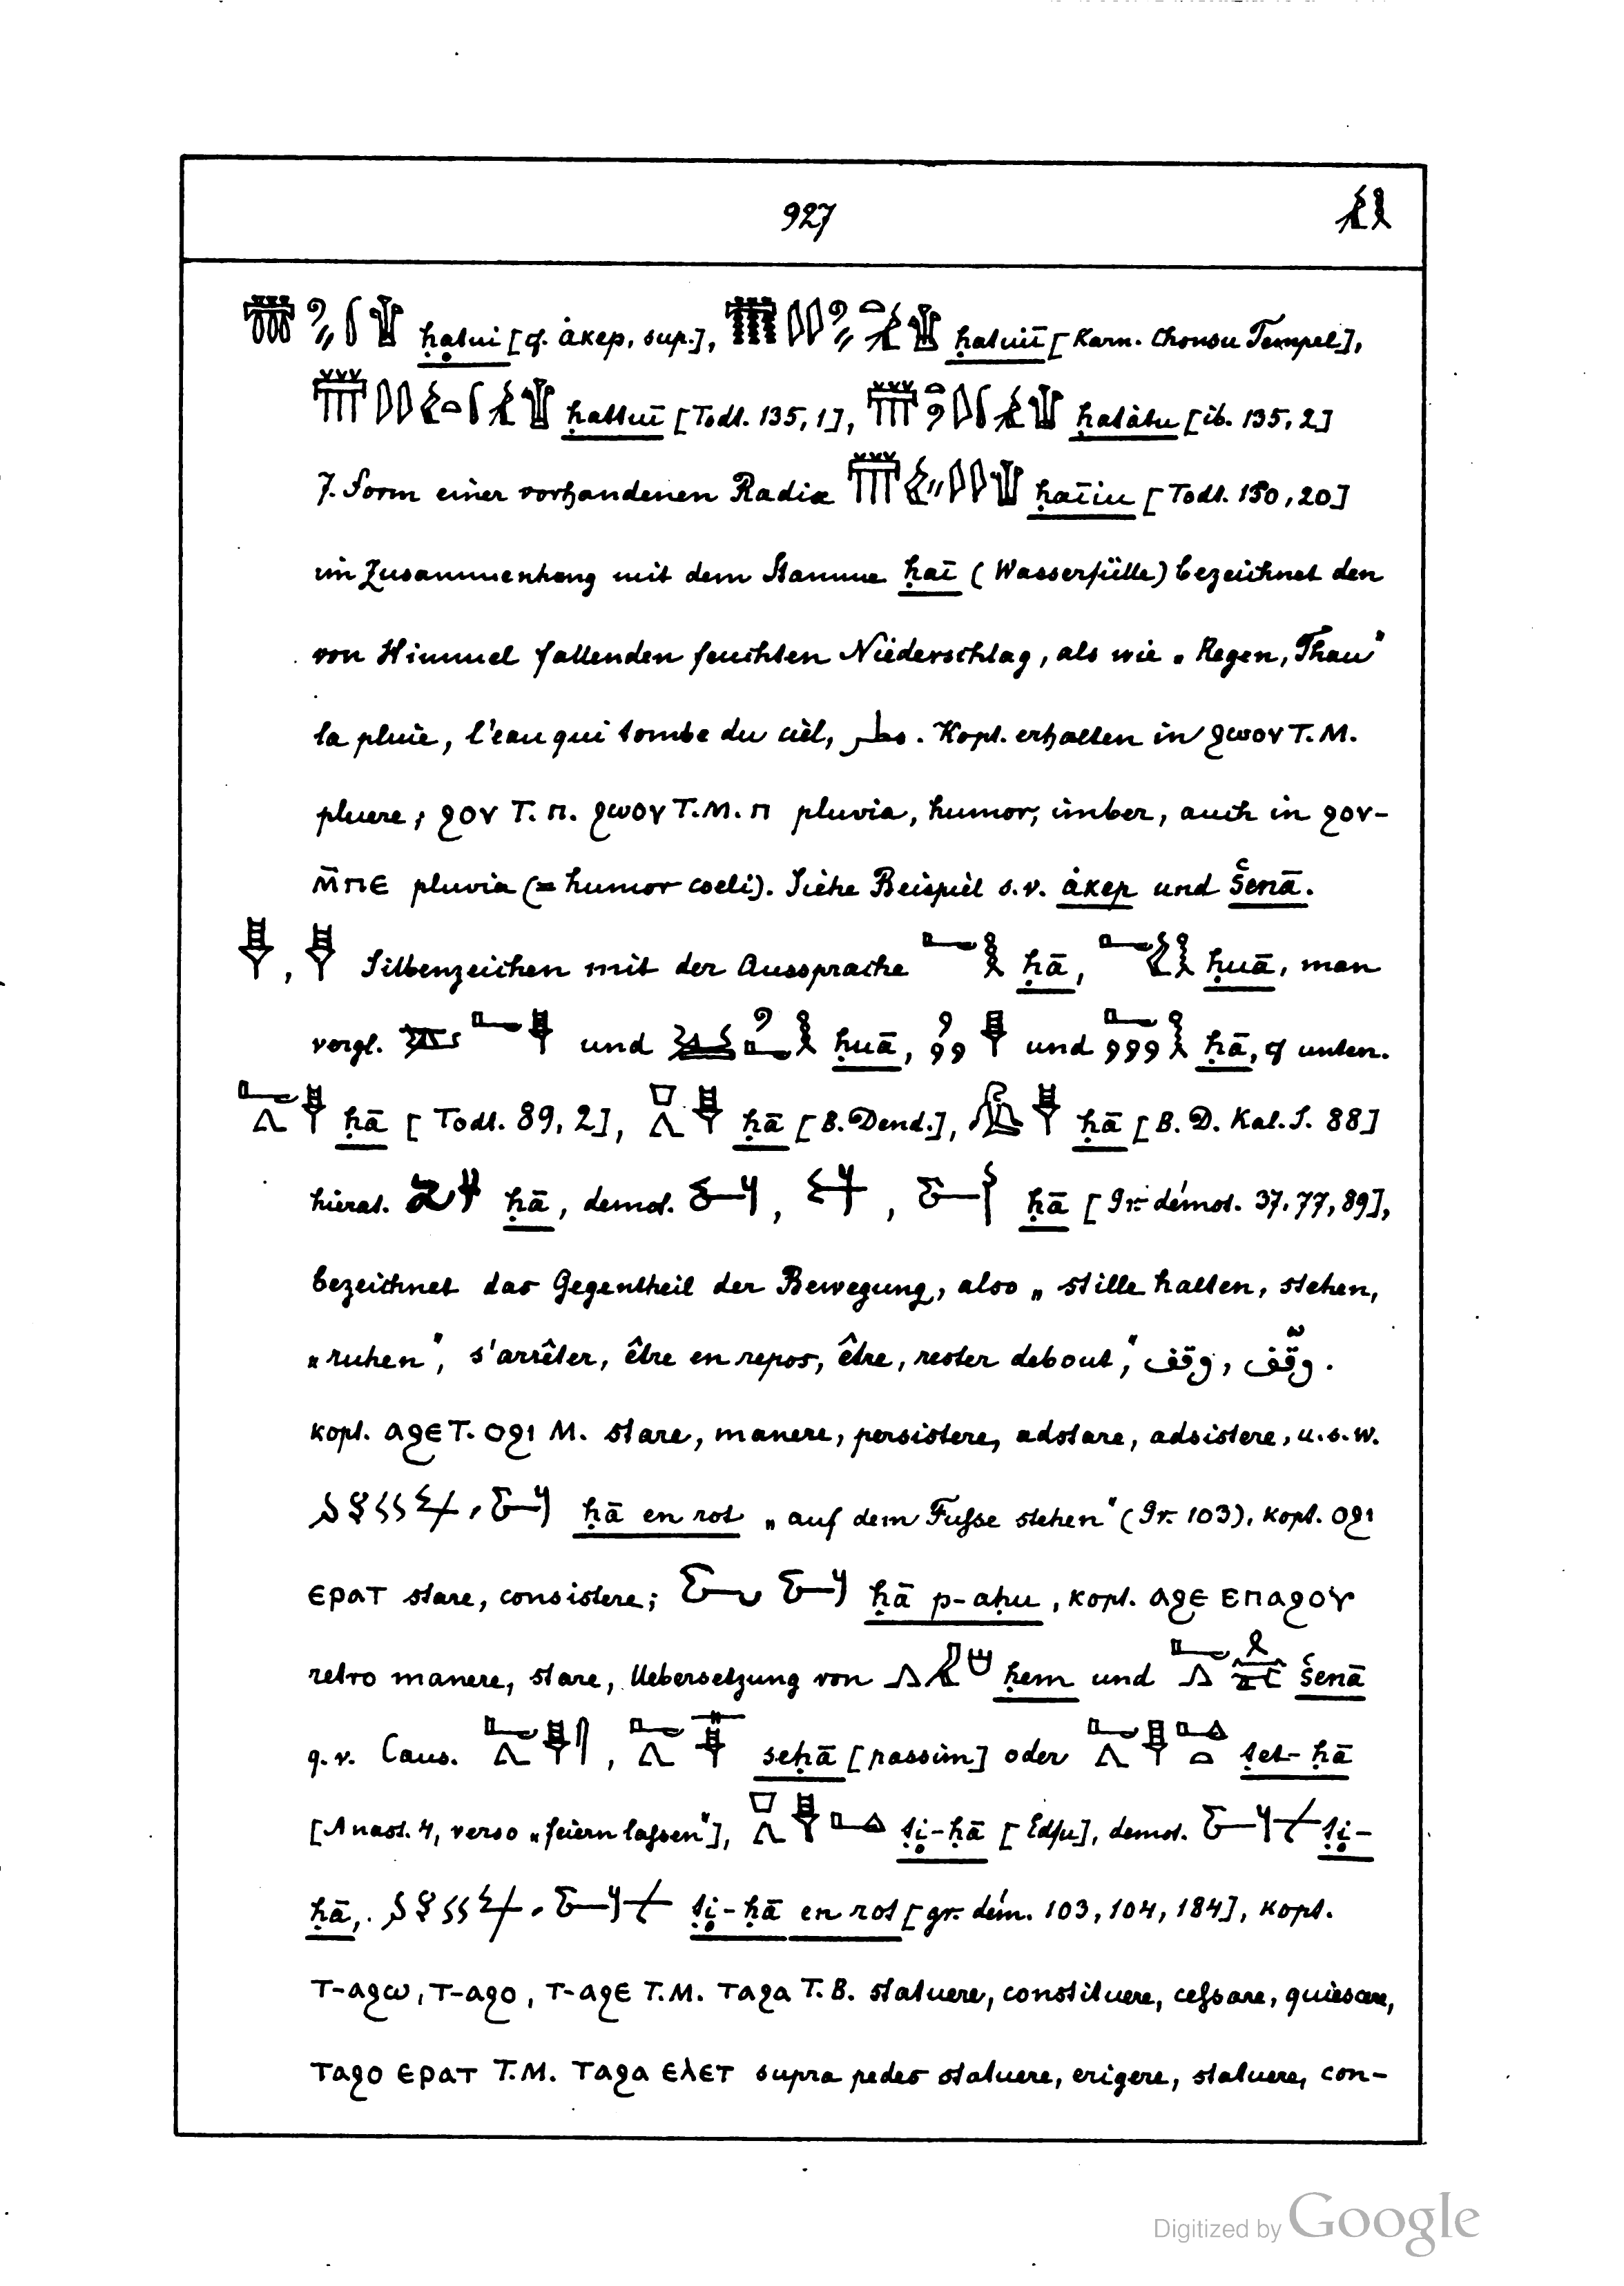 927
ḥạtui [cf. ȧkep, sup.], ḥatuiī [Karn. Chonsu Tempel],
ḥattuī [Todt. 135,1], ḥatȧtu [ib. 135,2]
7. Form einer vorhandenen Radix ḥaīiu [Todt. 150,20]
im Zusammenhang mit dem Stamme ḥaī (Wasserfülle) bezeichnet den
von Himmel fallenden feuchten Niederschlag, als wie „Regen, Thau“
la pluie, l'eau qui tombe du ciel, مطر. Kopt. erhalten in ϩωου T.M.
pluere; ϩου T. π. ϩωου T.M. π pluvia, humor, imber, auch in ϩου-
ⲙ̄ⲡⲉ pluvia (= humor coeli). Siehe Beispiel s.v. ȧkep und šenā.
, Silbenzeichen mit der Aussprache ḥā, ḥuā, man
vergl. und ḥuā, und ḥā, cf unten.
ḥā [Todt. 89,2], ḥā [B. Dend.], ḥā [B. D. Kal. I. 88]
hierat. ḥā, demot. , , ḥā [Gr. démot. 37, 77, 89],
bezeichnet das Gegentheil der Bewegung, also „stille halten, stehen,
„ruhen“, s'arrêter, être en repos, être, rester debout, وقف, وقّف.
kopt. ⲁϩⲉ T. ⲟϩⲓ M. stare, manere, persistere, adstare, adsistere, u.s.w.
ḥā en rot „auf dem Fuſse stehen“ (Gr. 103), kopt. ⲟϩⲓ
ⲉⲣⲁⲧ stare, consistere; ḥā p-aḥu, kopt. ⲁϩⲉ ⲉⲡⲁϩⲟⲩ
retro manere, stare, Uebersetzung von ḥem und šenā
q.v. Caus. , seḥā [passim] oder ṭet-ḥā
[Anast. 4, verso „feiern laſsen“], ṭị-ḥā [Edfu], demot. ṭị-
ḥā, ṭị-ḥā en rot [gr. dém. 103, 104, 184], kopt.
ⲧ-ⲁϩⲱ, ⲧ-ⲁϩⲟ, ⲧ-ⲁϩⲉ T.M. ⲧⲁϩⲁ T.B. statuere, constituere, ceſsare, quiescere,
ⲧⲁϩⲟ ⲉⲣⲁⲧ T.M. ⲧⲁϩⲁ ⲉⲗⲉⲧ supra pedes statuere, erigere, statuere, con-
Digitized by Google